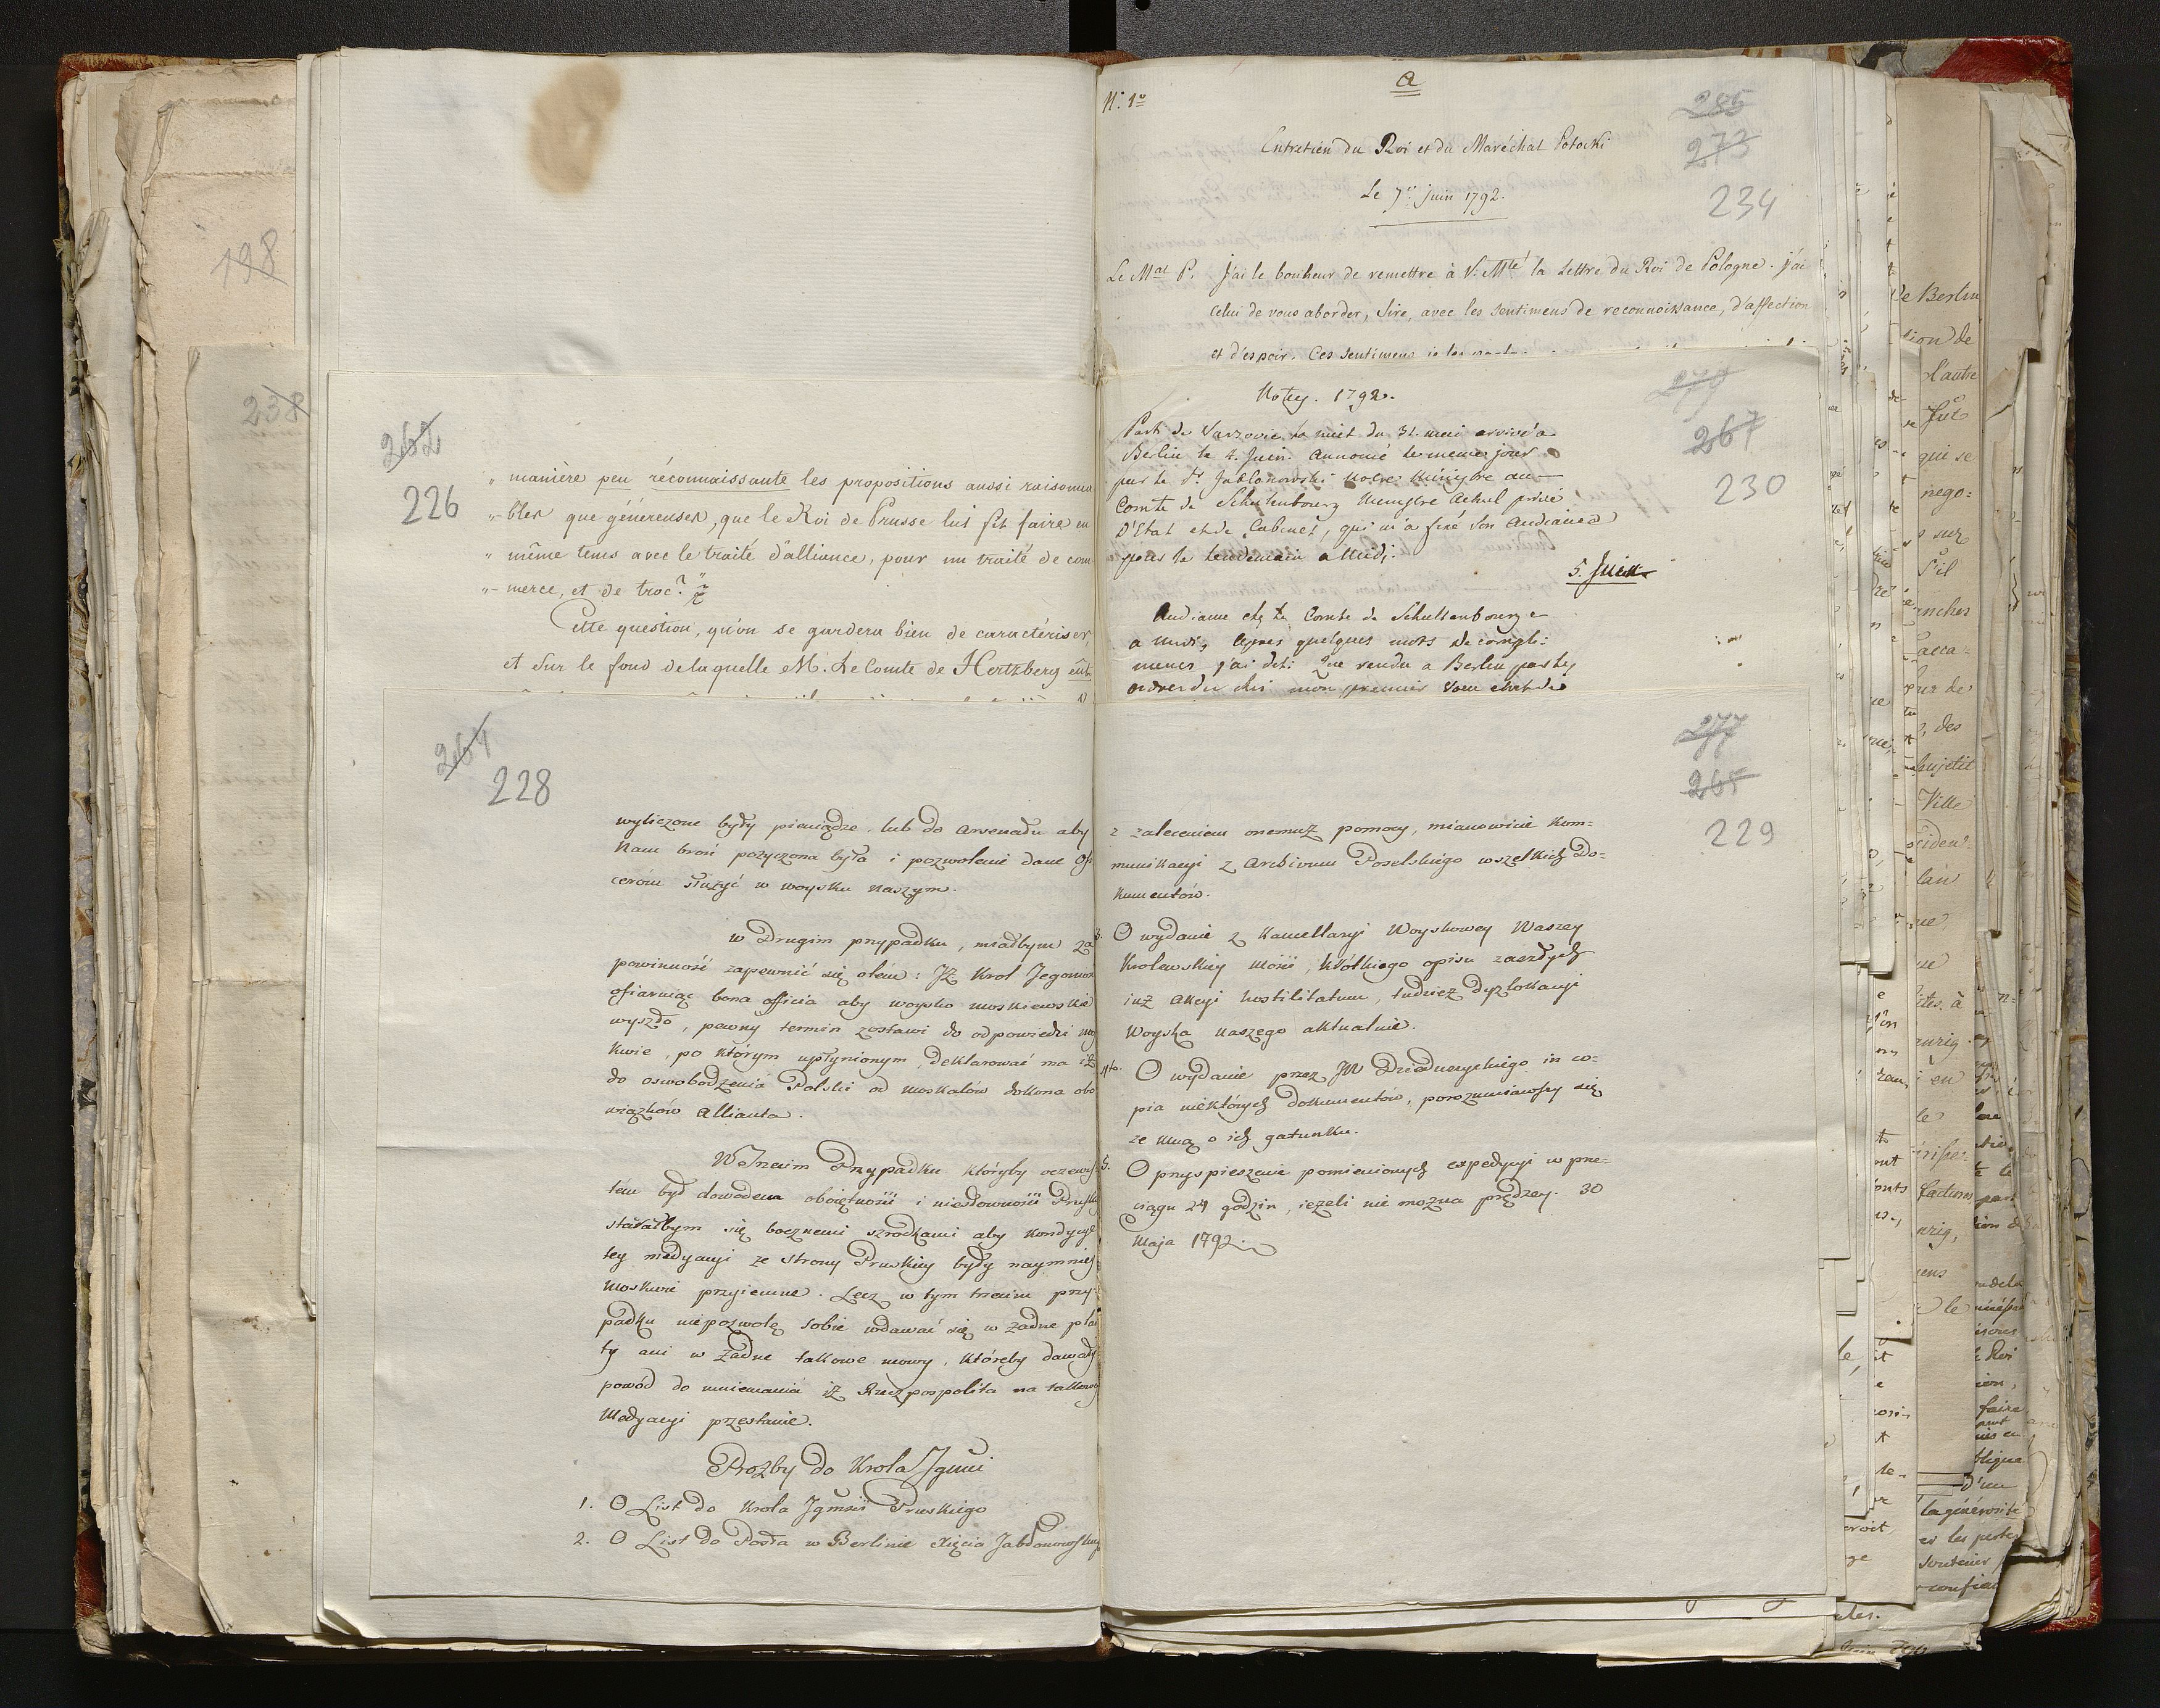 198
238
262
226
„ manière peu réconnaissante les propositions aussi raisonna
„-bles que généreuses, que le Roi de Prusse lui fit faire en
„ même tems avec le traité d'alliance, pour un traité de com
„-merce, et de troc?"
Cette question, qu'on se gardera bien de caractériser,
et sur le fond de laquelle M. Le Comte de Hertzberg eût
264
228
wyliczone były pieniądze, lub do Arsenału aby
Nam broń pożyczona była i pozwolenie dane Ofi
cerom służyć w woysku naszym.
w Drugim przypadku, miałbym za
powinność zapewnić się otém: Iż Krol Jegomość
ofiarując bona officia aby woysko moskiewskie
wyszło, pewny termin zostawi do odpowiedzi mo
kwie, po którym upłynionym, deklarować ma iż
do oswobodzenia Polski od Moskalów dokona obo
wiązków Allianta.
W Trzecim Przypadku któryby oczewis
tém był dowodem oboiętności i niesłowności Pruski
starałbym się bocznemi szrodkami aby kondycye
tey medyacyi ze strony Pruskiey były naymniey
Moskwie przyiemne. Lecz w tym trzecim przy-
padku niepozwolę sobie wdawać się w żadne
ty ani w żadne takowe mowy, któreby dawały
powód do mniemania iż Rzeczpospolita na takowey
Medyacyi przestanie.
Prozby do Krola Jgmci
1. O List do Krola Jgmści Pruskiego
2. O List do Posła w Berlinie Xięcia Jabłonowskieg
a
N. 1o
285
273
234
Entretien du Roi et du Maréchal Potocki
Le 7 juin 1792.
Le Mal P. J'ai le bonheur de remettre à V. Mté la Lettre du Roi de Pologne. j'ai
celui de vous aborder, Sire, avec les sentimens de reconnoissance, d'affection
et d'espoir. Ces sentimens je les
267
230
Noty. 1792.
Parti de Varsovie la nuit du 31. mai arrivé a
Berlin le 4. Juin. Annoncé le meme jour
par le Pr Jablonowski notre Ministre au
Comte de Schulenbourg Ministre Actuel privé
D'Etat et de Cabinet, qui m'a fixé son Audiance
pour le lendemain a Midi.
5. Juin
Audiance chez le Comte de Schullenbourg
a midi, apres quelques mots de compli:
mens, j'ai dit: Que rendu a Berlin par les
ordres du Roi mon premier
277
265
229
z zaleceniem onemuż pomocy, mianowicie kom=
munikacyi z Archivum Poselskiego wszelkich Do=
kumentów.
3. O wydanie z Kancellaryi Woyskowey Waszey
Krolewskiey Mości, krótkiego opisu zaszłych
iuż akcyi hostilitatum, tudzież dyzlokacyi
Woyska naszego aktualnie.
4to. O wydanie przez JW Dzieduszyckiego in co=
pia niektórych dokumentów, porozumiawszy się
ze mną o ich gatunku.
5. O przyspieszenie pomienionych expedycyi w prze=
ciągu 24 godzin, ieżeli nie można prędzey. 30
Maja 1792.
de Berlin
tion de
l'autre
qui se
nego=
sur
s'il
pur de
des
Ville
le Roi
faire
la générosité